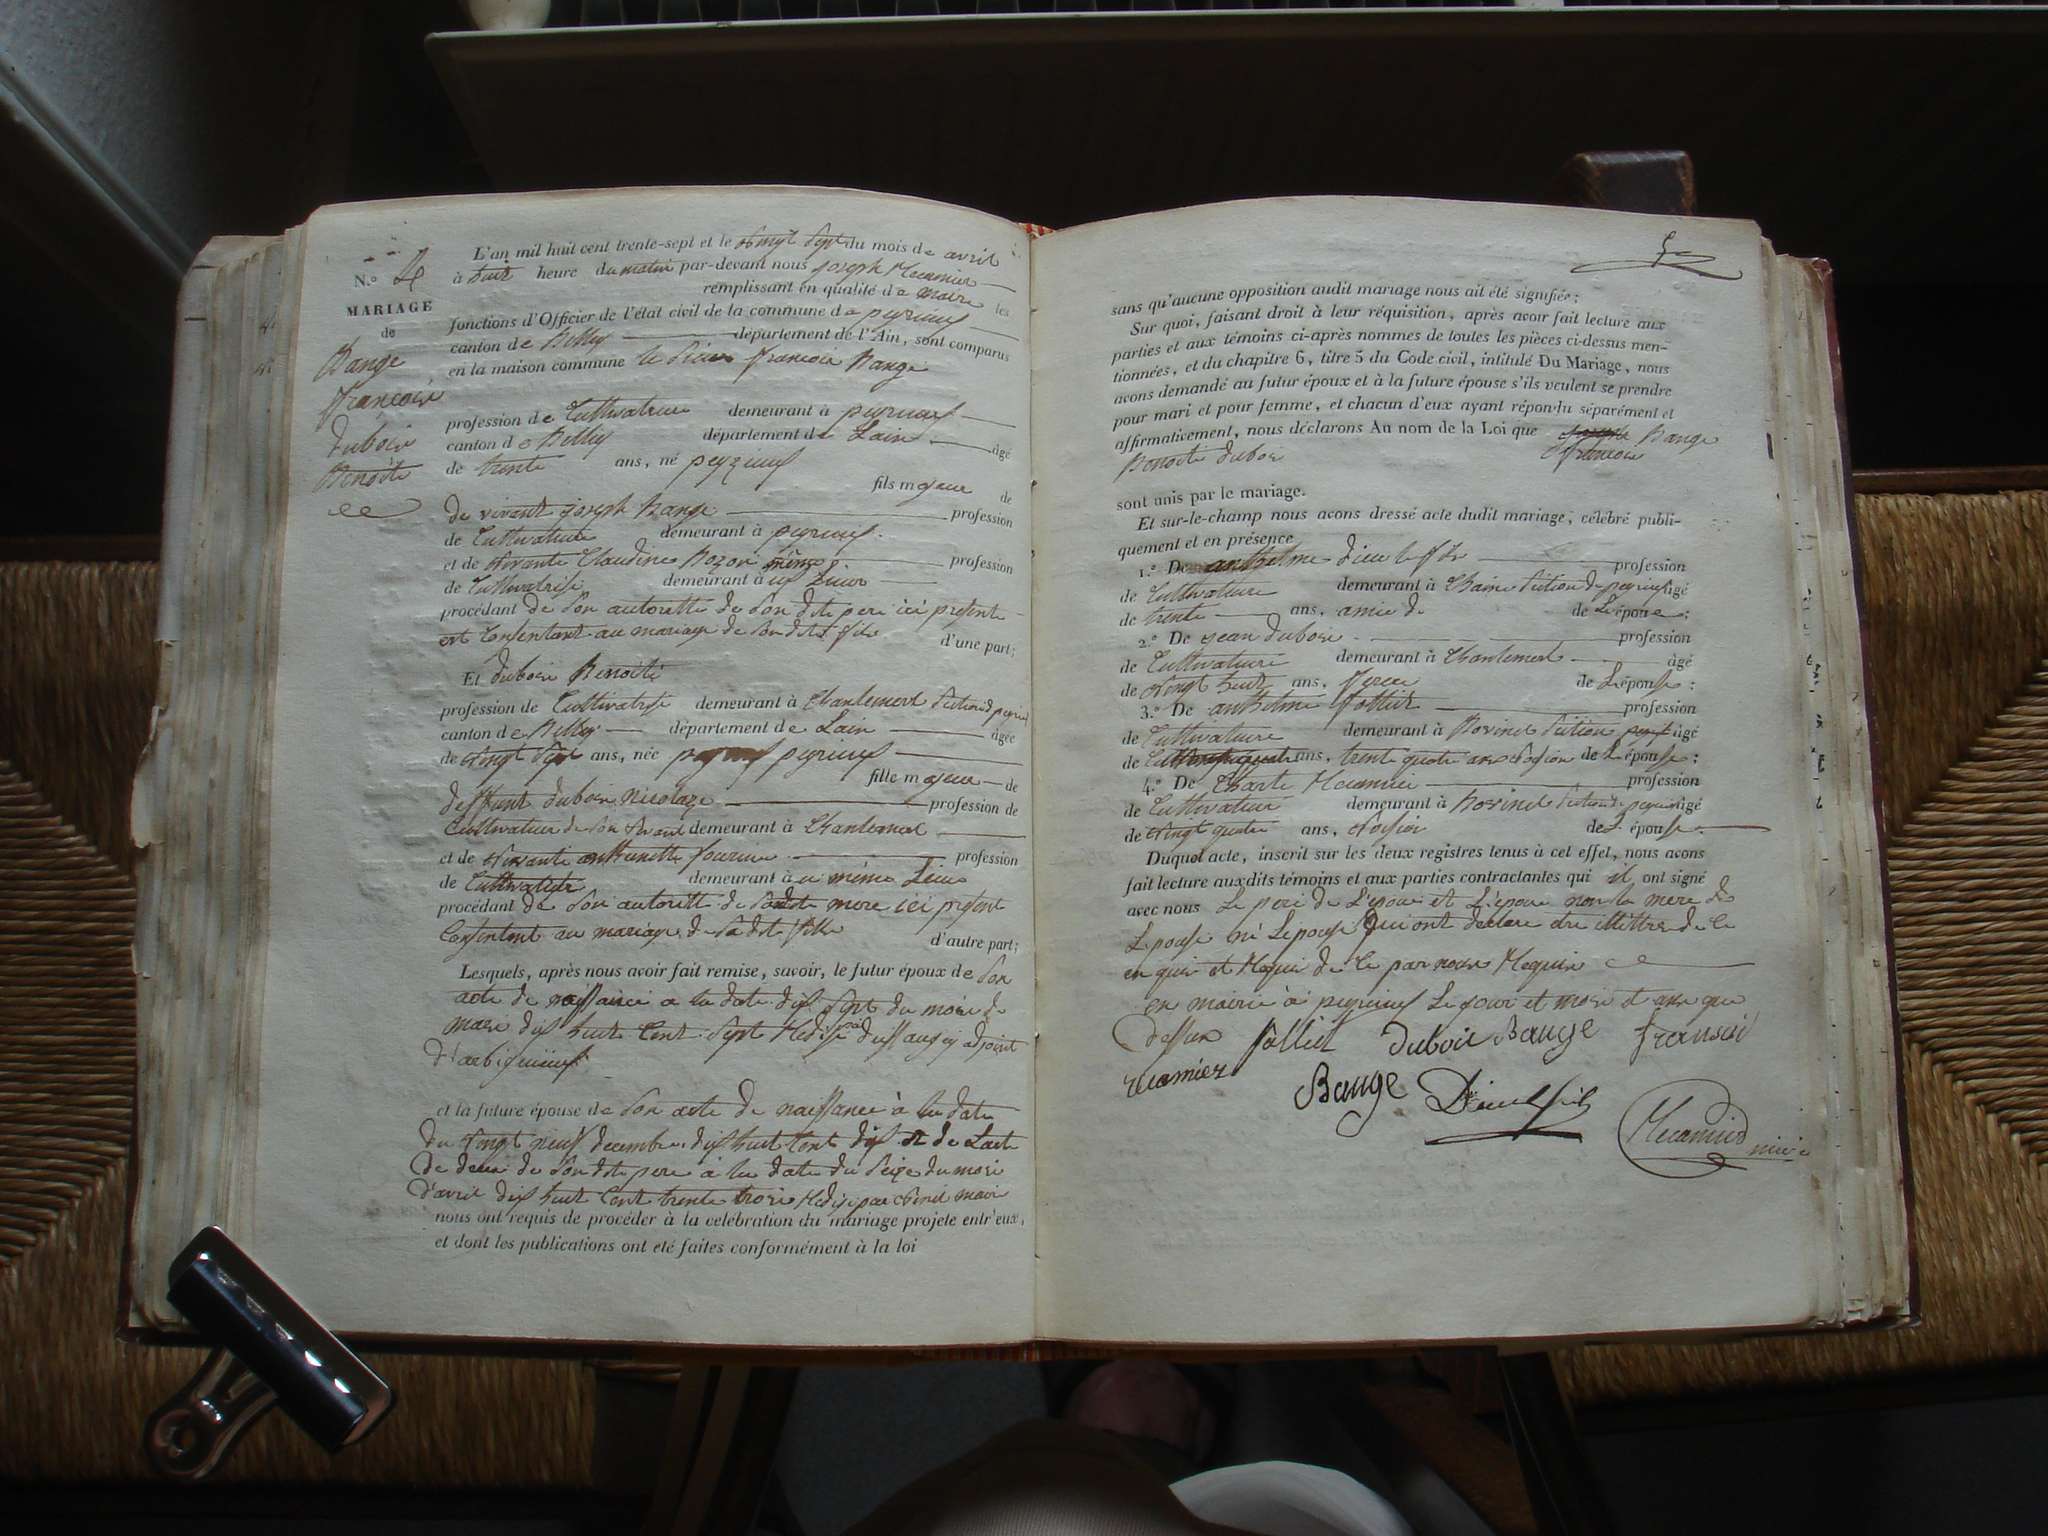 N.º 4
MARIAGE
de
Bange
françois
dubois
Benoite
L'an mil huit cent trente-sept et le vingt sept du mois de avril
à huit heure du matin par-devant nous joseph Mecamier
remplissant en qualité de maire les
fonctions d'Officier de l'état civil de la commune de peyrieux
canton de Belley département de l'Ain, sont comparus
en la maison commune le sieur françois Bange
profession de Cultivateur demeurant à peyrieux
canton de Belley département de Lain âgé
de trente ans, né peyzieux
fils majeur de
de vivant joseph Bange profession
de Cultivateur demeurant à peyrieux
et de vivante Claudine Bozon même profession
de Cultivatrise demeurant à
procédant de son autoritté de son dit pere ici present
est Consentant au mariage de son dit fils d'une part;
Et dubois Benoite
profession de Cultivatrise demeurant à Chantemerl
canton de Belley département de Lain âgée
de vingt sept ans, née peyrieux
fille majeur de
deffunt dubois Nicolaze profession de
Cultivateur de son vivant demeurant à Chantemerl
et de vivante profession
de Cultivatrise demeurant à u même Lieux
procédant de son autoritté de sadite mere ici present
Consentent au mariage de sadite fille d'autre part;
Lesquels, après nous avoir fait remise, savoir, le futur époux de son
acte de naissance a la date dix sept du mois de
mars dix huit Cent sept adjoint
d'arbignieux
et la future épouse de son acte de naissance à la date
du vingt neuf decembre dix huit Cent dix et de Lacte
de deces de son dit pere à la date du seize du mois
d'avril dix huit Cent trente trois maire
nous ont requis de procéder à la célébration du mariage projeté entr'eux,
et dont les publications ont été faites conformément à la loi
5
sans qu'aucune opposition audit mariage nous ait été signifiée;
Sur quoi, faisant droit à leur réquisition, après avoir fait lecture aux
parties et aux témoins ci-après nommes de toutes les pièces ci-dessus men-
tionnées, et du chapitre 6, titre 5 du Code civil, intitulé Du Mariage, nous
avons demandé au futur époux et à la future épouse s'ils veulent se prendre
pour mari et pour femme, et chacun d'eux ayant répondu séparément et
affirmativement, nous déclarons Au nom de la Loi que joseph Bange
Benoite dubois françois
sont unis par le mariage.
Et sur-le-champ nous avons dressé acte dudit mariage, célébré publi-
quement et en présence
1.º De anthelme dieu le fils profession
de Cultivateur demeurant à section de peyrieux âgé
de trente ans, amie de de L'époux;
2.º De jean dubois profession
de Cultivateur demeurant à Chantemerl âgé
de vingt huit ans, frere de L'épouse;
3.º De anthelme follier profession
de Cultivateur demeurant à Rovinel section âgé
de ans, trente quatre ans voision de L'épouse;
4.º De Charle Mecamier profession
de Cultivateur demeurant à Rovinel section de peyrieux âgé
de vingt quatre ans, voision de L'épouse.
Duquel acte, inscrit sur les deux registres tenus à cet effet, nous avons
fait lecture auxdits témoins et aux parties contractantes qui il ont signé
avec nous Le pere de L'epoux et L'epoux non la mere de
L'epouse ni L'epouse qui ont déclaré etre illittrés de ce
en quis et requis de ce par nous
en mairie à peyrieux Le jour et mois et ans que
dessus follier Dubois Bange fransois
recamier
Bange Dieu fils Mecamier
maire